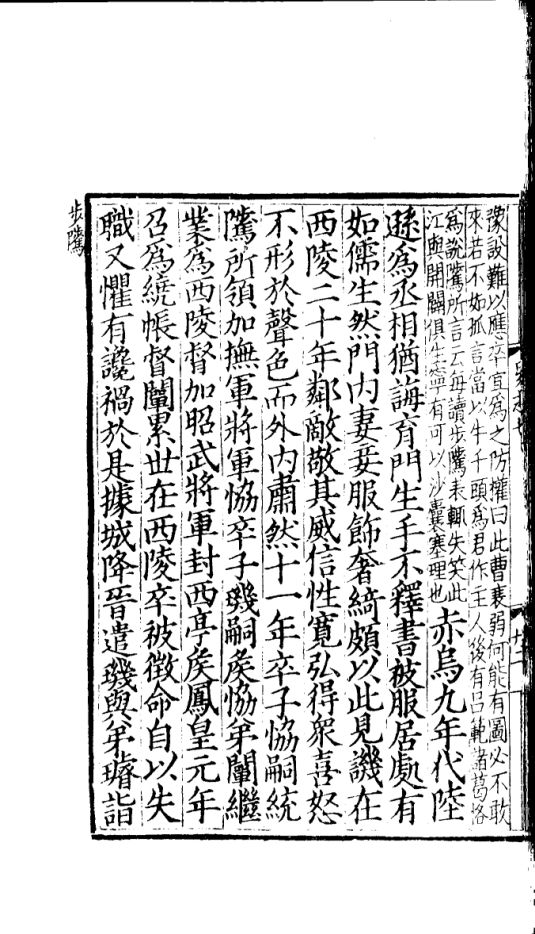 豫設難以應卒宜為之防權曰此曹衰弱何能有圖必不敢
來若不如孤言當以牛千頭為君作主人後有呂範諸葛恪
為說騭所言云每讀步騭表輒失笑此
江與開闢俱生寧有可以沙囊塞理也
赤烏九年代陸
遜為丞相猶誨育門生手不釋書被服居處有
如儒生然門内妻妾服飾奢綺頗以此見譏在
西陵二十年鄰敵敬其威信性寬弘得衆喜怒
不形於聲色而外内肅然十一年卒子協嗣統
騭所領加撫軍將軍協卒子璣嗣矦協弟闡繼
業為西陵督加昭武將軍封西亭矦鳳皇元年
召為繞帳督闡累世在西陵卒被徵命自以失
職又懼有讒禍於是據城降晉遣璣與弟璿詣
步騭